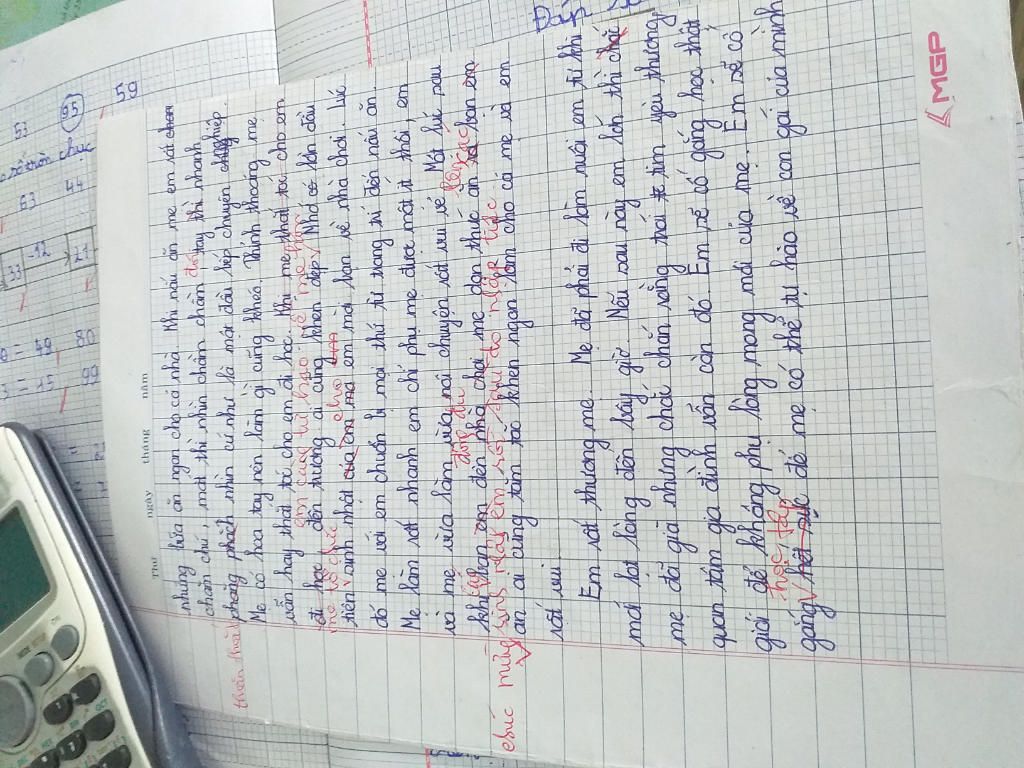 Thứ ngày tháng năm
những bữa ăn ngon cho cả nhà. Khi nấu ăn mẹ em rất chăm
chăm chú, mắt thì nhìn chằm chằm đôi tay thì nhanh
thoăn thoắt
phách nhìn cứ như là một đầu bếp chuyên nghiệp.
Mẹ có hoa tay nên làm gì cũng khéo. Thỉnh thoảng mẹ
vẫn hay thắt tóc cho em đi học. Khi mẹ thắt tóc cho em
em cũng tự hào về mẹ lắm
đi học đến trường ai cũng khen đẹp. Nhớ có lần đầu
mẹ tổ chức cho
tiên sinh nhật của em mà em mời bạn về nhà chơi. Lúc
đó mẹ với em chuẩn bị mọi thứ từ trang trí đến nấu ăn.
Mẹ làm rất nhanh em chỉ phụ mẹ được một ít thôi, em
và mẹ vừa làm vừa nói chuyện rất vui vẻ. Một lúc sau
đông đủ các
khi bạn em đến nhà chơi mẹ dọn thức ăn bạn em
chúc mừng sinh nhật em rồi sau đó nhập tiệc
ăn ai cũng tấm tắc khen ngon làm cho cả mẹ và em
rất vui.
Em rất thương mẹ. Mẹ đã phải đi làm nuôi em từ khi
mới lọt lòng đến bây giờ. Nếu sau này em lớn thì chắc
mẹ đã già nhưng chắc chắn rằng trái tim yêu thương,
quan tâm gia đình vẫn còn đó. Em sẽ cố gắng học thật
giỏi để không phụ lòng mong mỏi của mẹ. Em sẽ cố
học tập
gắng hết sức để mẹ có thể tự hào về con gái của mình
MGP
53
95
59
63
44
33
-12
21
= 49
80
= 15
99